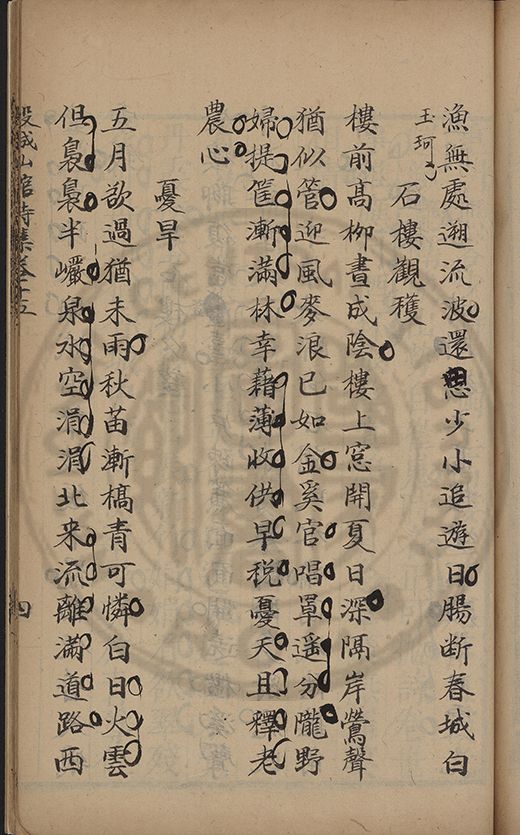 漁無處遡流波還思少小追遊日腸斷春城白
玉珂
石樓觀穫
樓前高柳晝成陰樓上窓開夏日深隔岸鶯聲
猶似管迎風麥浪已如金奚官唱罩遥分隴野
婦提筐漸滿林幸藉薄收供早税憂天且釋老
農心
憂旱
五月欲過猶未雨秋苗漸槁青可憐白日火雲
但裊裊半巖泉水空涓涓北来流離滿道路西
穀城山館詩集卷十五
四